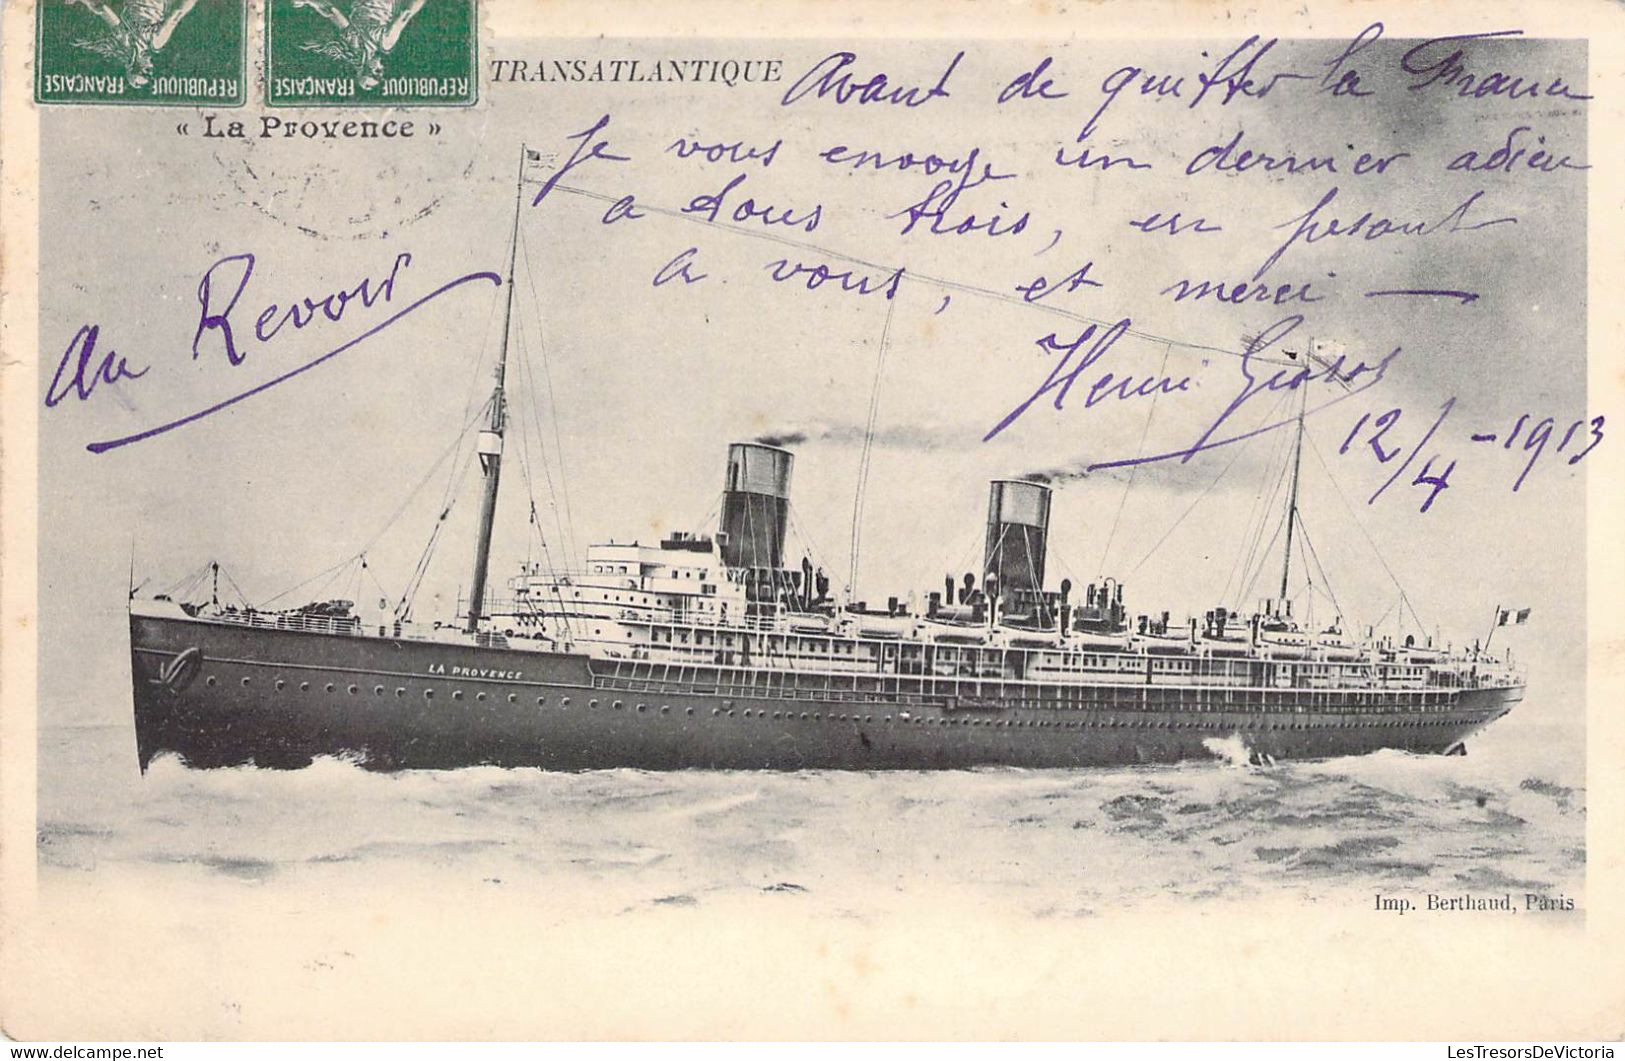 REPUBLIQUE FRANÇAISE
REPUBLIQUE FRANÇAISE
TRANSATLANTIQUE
« La Provence »
Avant de quitter la France
Je vous envoye un dernier adieu
a tous trois, en pesant
a vous, et merci —
Au Revoir
Henri
12/4-1913
LA PROVENCE
Imp. Berthaud, Paris
LesTresorsDeVictoria